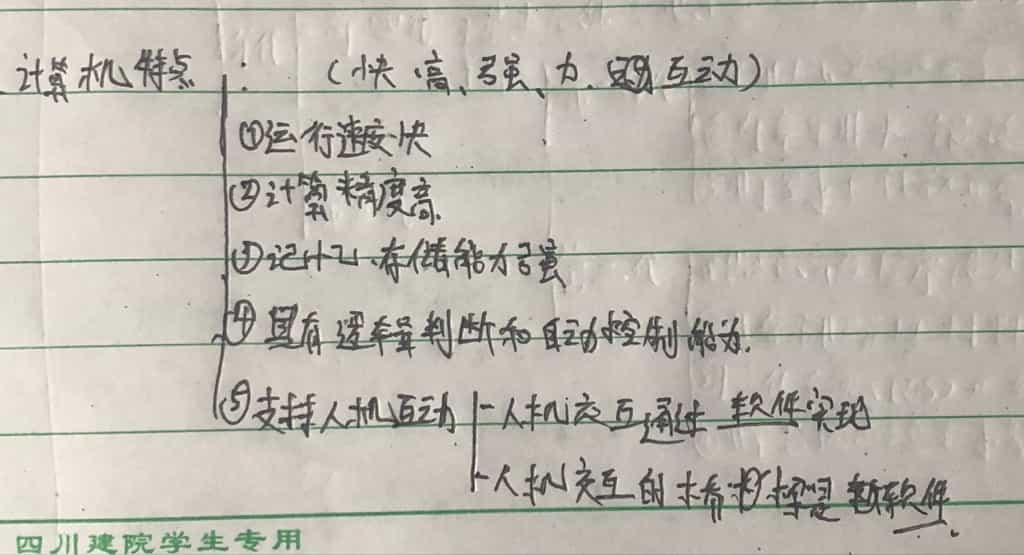 计算机特点：（快、高、强、力、互动）
①运行速度快
②计算精度高.
③记忆、存储能力强
④具有逻辑判断和自动控制能力.
⑤支持人机互动 人机交互通过软件实现
人机交互的 是 软件.
四川建院学生专用